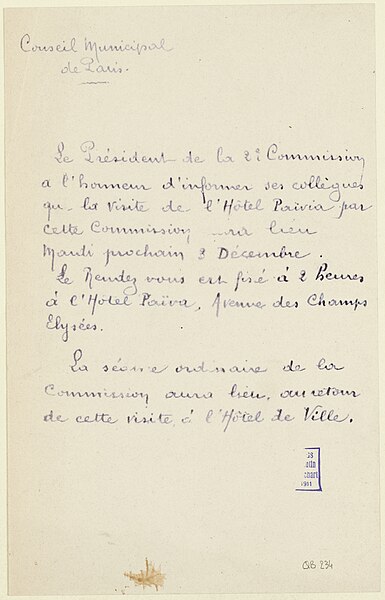 Conseil Municipal
de Paris.
Le Président de la 2e Commission
a l'honneur d'informer ses collègues
que la visite de l'Hôtel Païvia par
cette Commission ra lieu
Mardi prochain 3 Décembre.
Le Rendez vous est fixé à 2 heures
à l'Hôtel Païva, Avenue des Champs
Elysées.
La séance ordinaire de la
Commission aura lieu, au retour
de cette visite, à l'Hôtel de Ville.
1911
QB 234